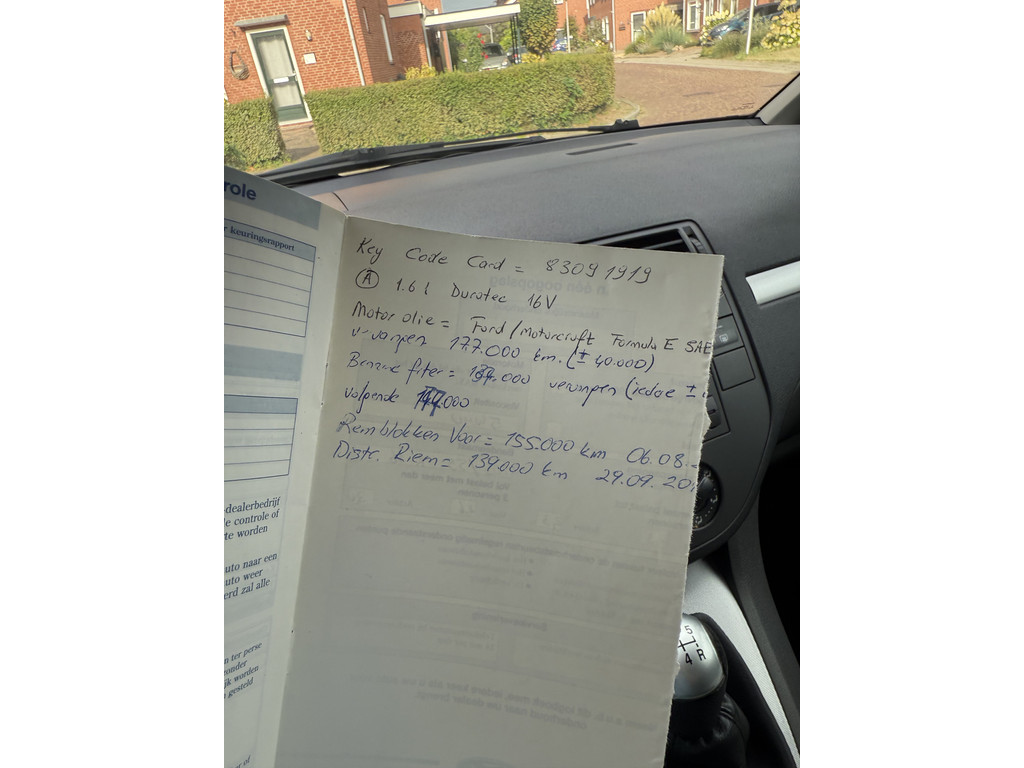 role
r keuringsrapport
-dealerbedrijf
le controle of
te worden
uto naar een
uto weer
erd zal alle
n ter perse
zonder
jk worden
gesteld
of
Key Code Card = 83091919
Ⓐ 1.6 l Duratec 16V
Motor olie = Ford/Motorcraft Formula E SAE
vervangen 177.000 km. (± 40.000)
Benzine filter = .000 vervangen (iedere ±
volgende 177.000
Remblokken Voor = 155.000 km 06.08.
Distr. Riem = 139.000 km 29.09.20
5
4 R